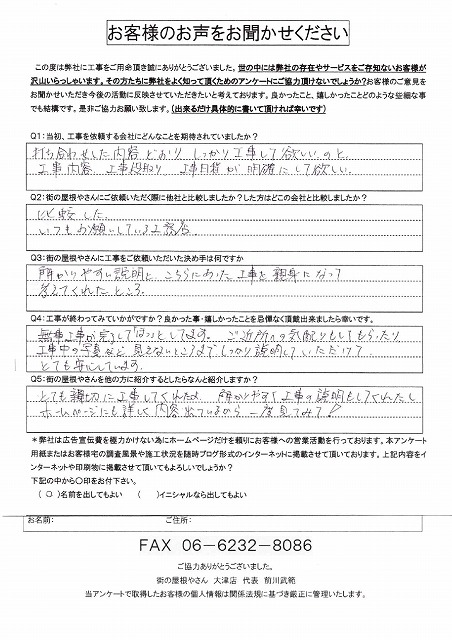 お客様のお声をお聞かせください
この度は弊社に工事をご用命頂き誠にありがとうございました。世の中には弊社の存在やサービスをご存知ないお客様が
沢山いらっしゃいます。その方たちに弊社をよく知って頂くためのアンケートにご協力頂けないでしょうか?お客様のご意見を
お聞かせいただき今後の活動に反映させていただきたいと考えております。良かったこと、嬉しかったことどのような些細な事
でも結構です。是非ご協力お願い致します。(出来るだけ具体的に書いて頂ければ幸いです)
Q1:当初、工事を依頼する会社にどんなことを期待されていましたか?
打ち合わせした内容どおり しっかり工事して欲しいのと、
工事内容、工事段取り 工事日程が明確にして欲しい。
Q2:街の屋根やさんにご依頼いただく際に他社と比較しましたか?した方はどこの会社と比較しましたか?
比較した。
いつもお願いしている工務店
Q3:街の屋根やさんに工事をご依頼いただいた決め手は何ですか
解かりやすい説明と、こちらにあった工事を親身になって
考えてくれたところ。
Q4:工事が終わってみていかがですか?良かった事・嬉しかったことを忌憚なく頂戴出来ましたら幸です。
無事工事が完了してほっとしてます。ご近所への気配りもしてもらったり
工事中の写真など 見えないところまでしっかり説明していただけて
とても安心しています。
Q5:街の屋根やさんを他の方に紹介するとしたらなんと紹介しますか?
とても親切に工事してくれたよ 解かりやすく工事の説明もしてくれたし
ホームページにも詳しく内容出ているから一度見てみて!
*弊社は広告宣伝費を極力かけない為にホームページだけを頼りにお客様への営業活動を行っております。本アンケート
用紙またはお客様宅の調査風景や施工状況を随時ブログ形式のインターネットに掲載させて頂いております。上記内容をイ
ンターネットや印刷物に掲載させて頂いてもよろしいでしょうか?
下記の中から〇印をお付下さい。
(〇)名前を出してもよい ( )イニシャルなら出してもよい
お名前: ご住所:
FAX 06-6232-8086
ご協力ありがとうございました。
街の屋根やさん 大津店 代表 前川武範
当アンケートで取得したお客様の個人情報は関係法規に基づき厳正に管理いたします。